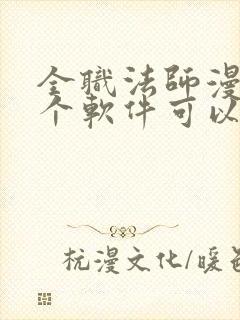 全職法師漫
个軟件可以
杭漫文化/暖